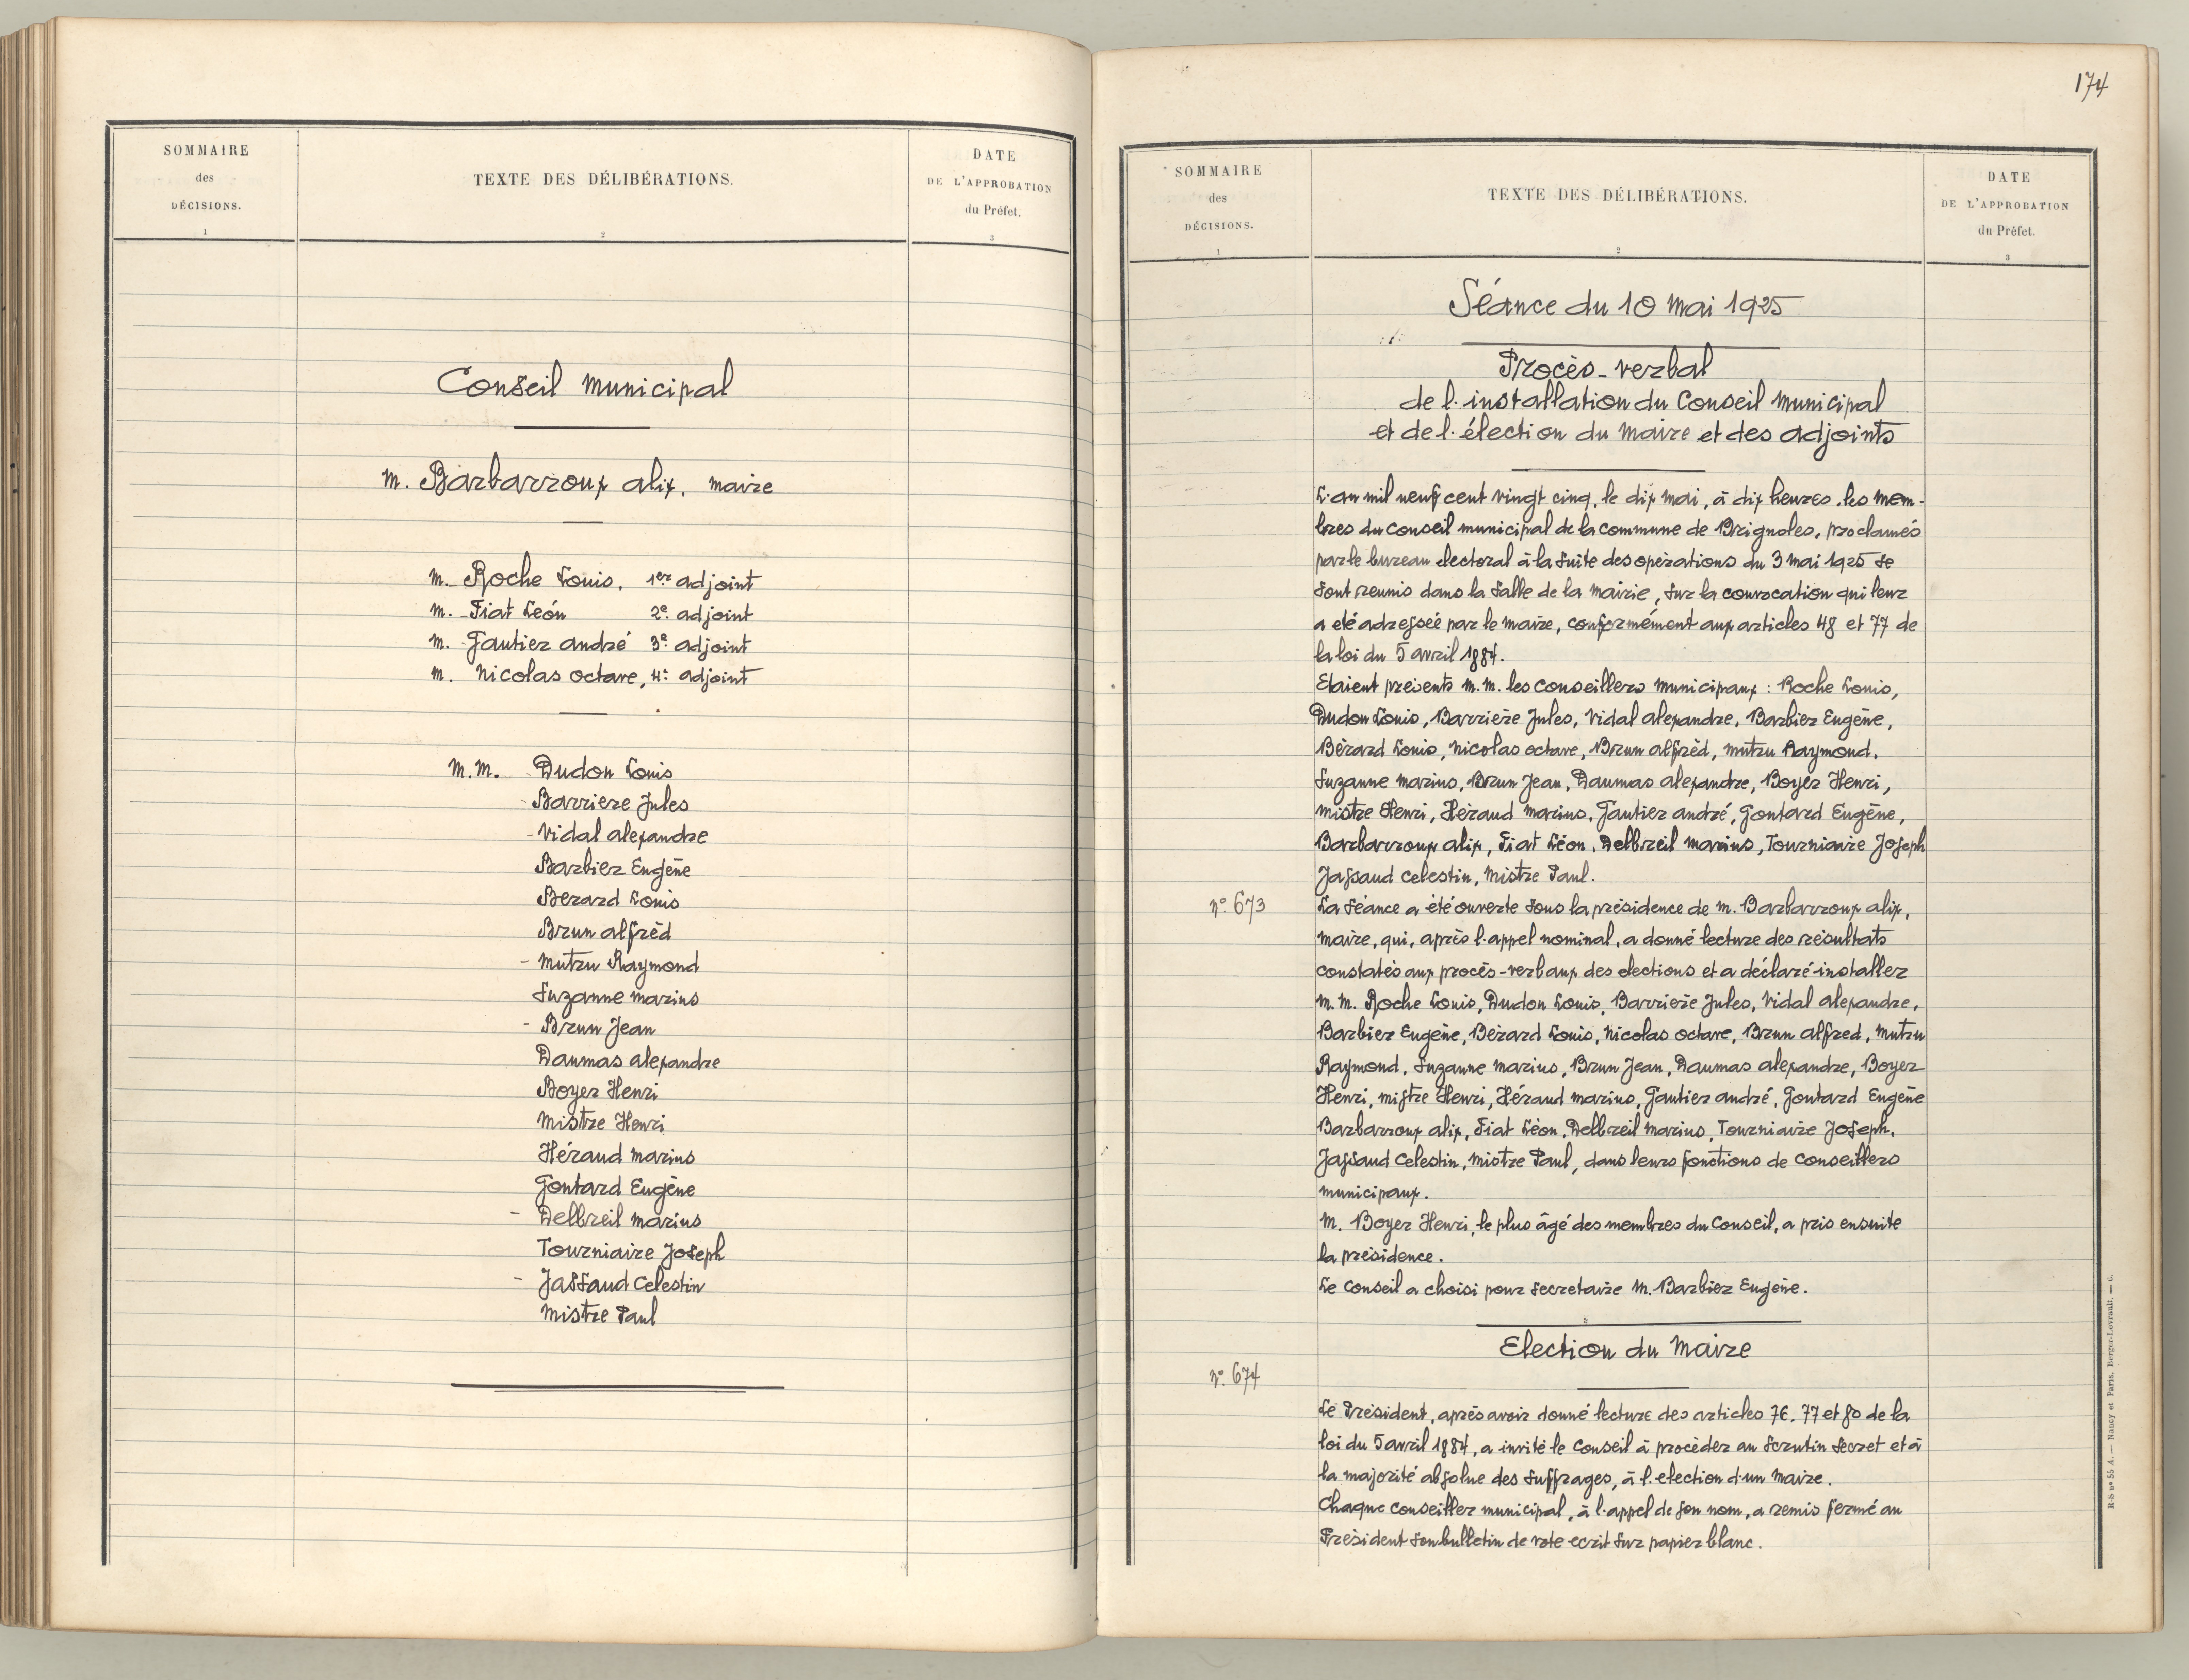 SOMMAIRE
des
DÉCISIONS.
1
TEXTE DES DÉLIBÉRATIONS.
2
DATE
DE L'APPROBATION
du Préfet.
3
Conseil Municipal
M. Barbarroux Alix, Maire
M. Roche Louis, 1er adjoint
M. Fiat Léon 2e adjoint
M. Gautier André 3e adjoint
M. Nicolas Octave, 4e adjoint
M.M. Dudon Louis
- Barriere Jules
- Vidal Alexandre
Barbier Eugène
Berard Louis
Brun Alfrèd
- Mutru Raymond
Suzanne Marius
- Brun Jean
Daumas Alexandre
Boyer Henri
Mistre Henri
Héraud Marius
Gontard Eugène
- Delbreil Marius
Tourniaire Joseph
- Jassaud Celestin
Mistre Paul
174
SOMMAIRE
des
DÉCISIONS.
1
TEXTE DES DÉLIBÉRATIONS.
2
DATE
DE L'APPROBATION
du Préfet.
3
Séance du 10 Mai 1925
Procès-verbal
de l'installation du Conseil Municipal
et de l'élection du Maire et des adjoints
L'an mil neuf cent vingt cinq, le dix mai, à dix heures, les mem-
bres du Conseil municipal de la commune de Brignoles, proclamés
par le bureau electoral à la suite des opérations du 3 mai 1925 se
sont reunis dans la salle de la Mairie, sur la convocation qui leur
a eté adressée par le Maire, conformément aux articles 48 et 77 de
la loi du 5 avril 1884.
Etaient présents M.M. les Conseillers Municipaux : Roche Louis,
Dudon Louis, Barrière Jules, Vidal Alexandre, Barbier Eugène,
Bérard Louis, Nicolas Octave, Brun Alfrèd, Mutru Raymond,
Suzanne Marius, Brun Jean, Daumas Alexandre, Boyer Henri,
Mistre Henri, Héraud Marius, Gautier André, Gontard Eugène,
Barbarroux Alix, Fiat Léon, Delbreil Marius, Tourniaire Joseph
Jassaud Celestin, Mistre Paul.
N° 673
La Séance a été ouverte sous la présidence de M. Barbarroux Alix,
Maire, qui, après l'appel nominal, a donné lecture des résultats
constatés aux procès-verbaux des elections et a déclaré installer
M.M. Roche Louis, Dudon Louis, Barrière Jules, Vidal Alexandre,
Barbier Eugène, Bérard Louis, Nicolas Octave, Brun Alfred, Mutru
Raymond, Suzanne Marius, Brun Jean, Daumas Alexandre, Boyer
Henri, Mistre Henri, Héraud Marius, Gautier André, Gontard Eugène
Barbarroux Alix, Fiat Léon, Delbreil Marius, Tourniaire Joseph,
Jassaud Celestin, Mistre Paul, dans leurs fonctions de Conseillers
municipaux.
M. Boyer Henri, le plus âgé des membres du Conseil, a pris ensuite
la présidence.
Le Conseil a choisi pour secretaire M. Barbier Eugène.
Election du Maire
N° 674
Le Président, après avoir donné lecture des articles 76, 77 et 80 de la
loi du 5 avril 1884, a invité le Conseil à procéder au Scrutin Secret et à
la majorité absolue des Suffrages, à l'election d'un Maire.
Chaque Conseiller municipal, à l'appel de son nom, a remis fermé au
Président son bulletin de vote ecrit sur papier blanc.
R-S n° 55 A. — Nancy et Paris. Berger-Levrault. — 6.